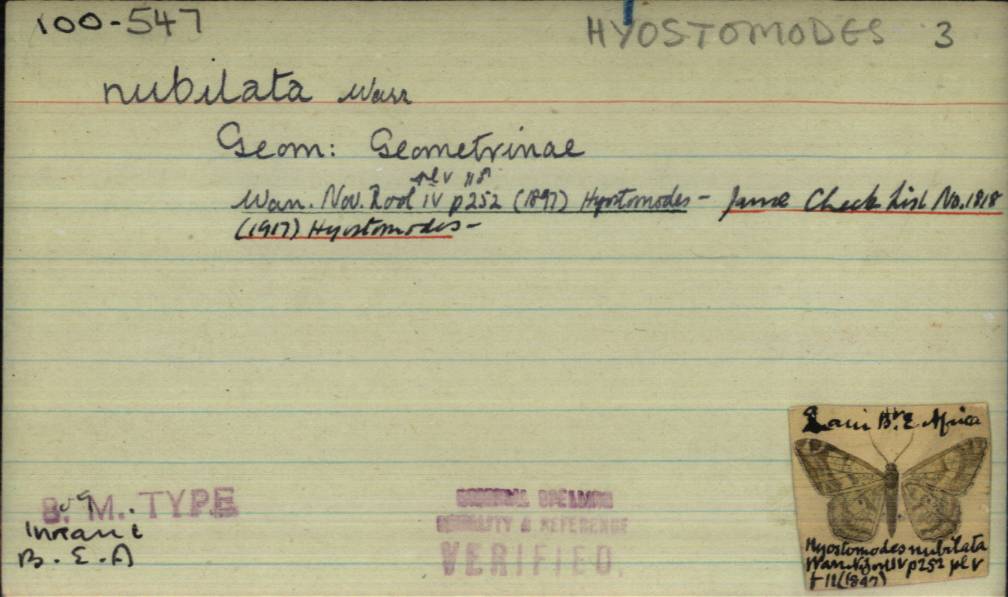 100-547
HYOSTOMODES 3
nubilata Warr
Geom: Geometrinae
pl V
Warr. Nov. Zool IV p252 (1897) Hyostomodes - Janse Check List No. 1818
(1917) Hyostomodes -
B. M. TYPE
B. E. A
ORIGINAL SPELLING
LOCALITY & REFERENCE
VERIFIED.
Br. E. Africa
Hyostomodes nubilata
Warr IV p252 pl V
f 11 (1897)